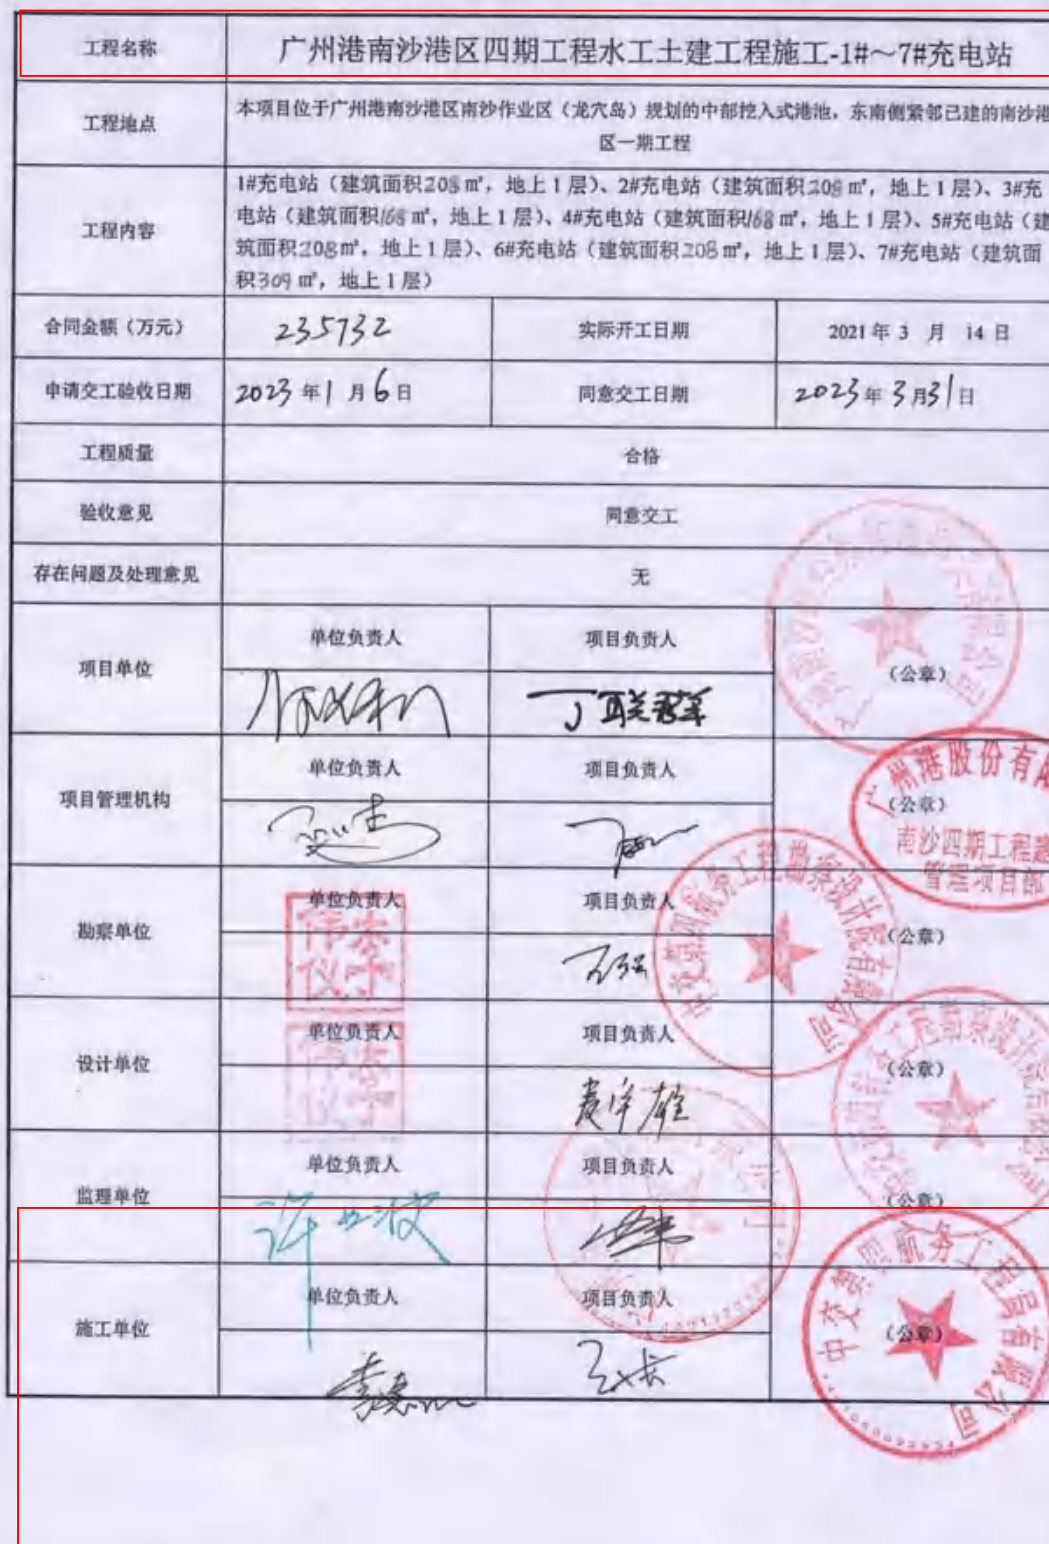 工程名称
广州港南沙港区四期工程水工土建工程施工-1#～7#充电站
工程地点
本项目位于广州港南沙港区南沙作业区（龙穴岛）规划的中部挖入式港池，东南侧紧邻已建的南沙港
区一期工程
工程内容
1#充电站（建筑面积208㎡，地上1层）、2#充电站（建筑面积208㎡，地上1层）、3#充
电站（建筑面积168㎡，地上1层）、4#充电站（建筑面积168㎡，地上1层）、5#充电站（建
筑面积208㎡，地上1层）、6#充电站（建筑面积208㎡，地上1层）、7#充电站（建筑面
积309㎡，地上1层）
合同金额（万元） 235732 实际开工日期 2021年3月14日
申请交工验收日期 2023年1月6日 同意交工日期 2023年3月31日
工程质量 合格
验收意见 同意交工
存在问题及处理意见 无
项目单位 单位负责人 项目负责人 （公章）
项目管理机构 单位负责人 项目负责人 （公章）
广州港股份有限
南沙四期工程建
管理项目部
勘察单位 单位负责人 项目负责人 （公章）
中交第四航务工程勘察设计院有限公司
设计单位 单位负责人 项目负责人 （公章）
监理单位 单位负责人 项目负责人 （公章）
施工单位 单位负责人 项目负责人 （公章）
中交第四航务工程局有限公司